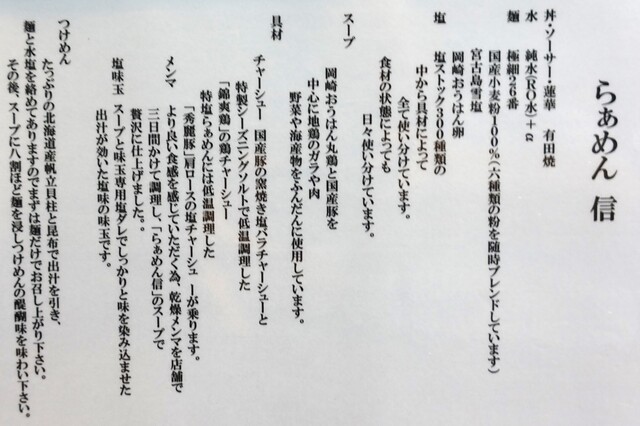 らぁめん 信
丼・ソーサー・蓮華 有田焼
水 純水(RO水)+α
麺 極細26番
国産小麦粉100%(六種類の粉を随時ブレンドしています)
宮古島雪塩
岡崎おうはん卵
塩 塩ストック300種類の
中から具材によって
全て使い分けています。
食材の状態によっても
日々使い分けています。
スープ
岡崎おうはん丸鶏と国産豚を
中心に地鶏のガラや肉
野菜や海産物をふんだんに使用しています。
具材
チャーシュー 国産豚の窯焼き塩バラチャーシューと
特製シーズニングソルトで低温調理した
「錦爽鶏」の鶏チャーシュー
特塩らぁめんには低温調理した
「秀麗豚」肩ロースの塩チャーシューが乗ります。
メンマ より良い食感を感じていただく為、乾燥メンマを店舗で
三日間かけて調理し、「らぁめん信」のスープで
贅沢に仕上げました。。
塩味玉 スープと味玉専用塩ダレでしっかりと味を染み込ませた
出汁が効いた塩味の味玉です。
つけめん
たっぷりの北海道産帆立貝柱と昆布で出汁を引き、
麺と水塩を絡めてありますのでまずは麺だけでお召し上がり下さい。
その後、スープに八割ほど麺を浸しつけめんの醍醐味を味わい下さい。